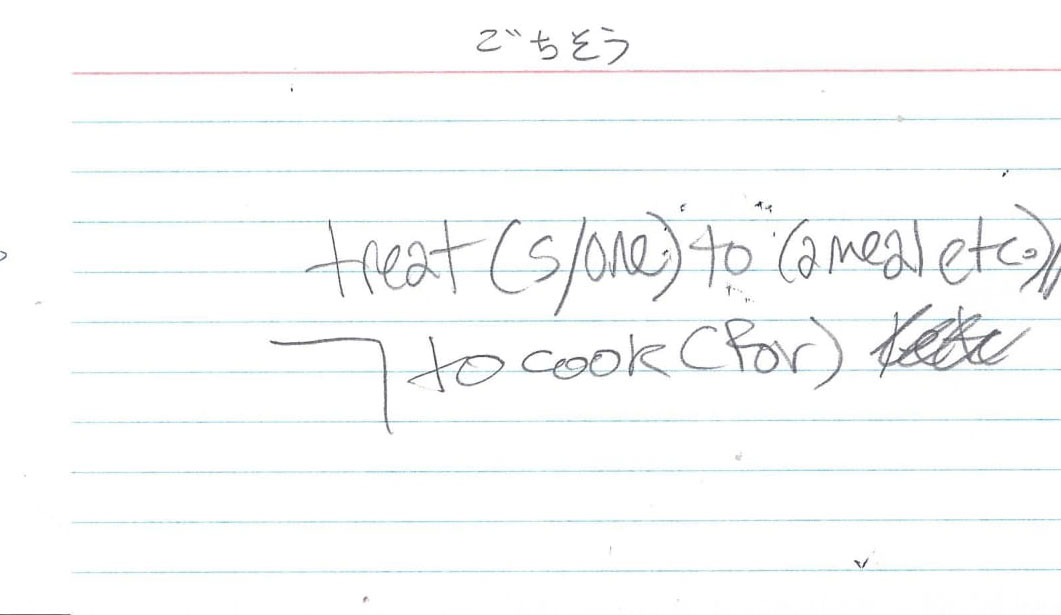 ごちそう
treat (s/one) to (a meal etc.)//
to cook (for)